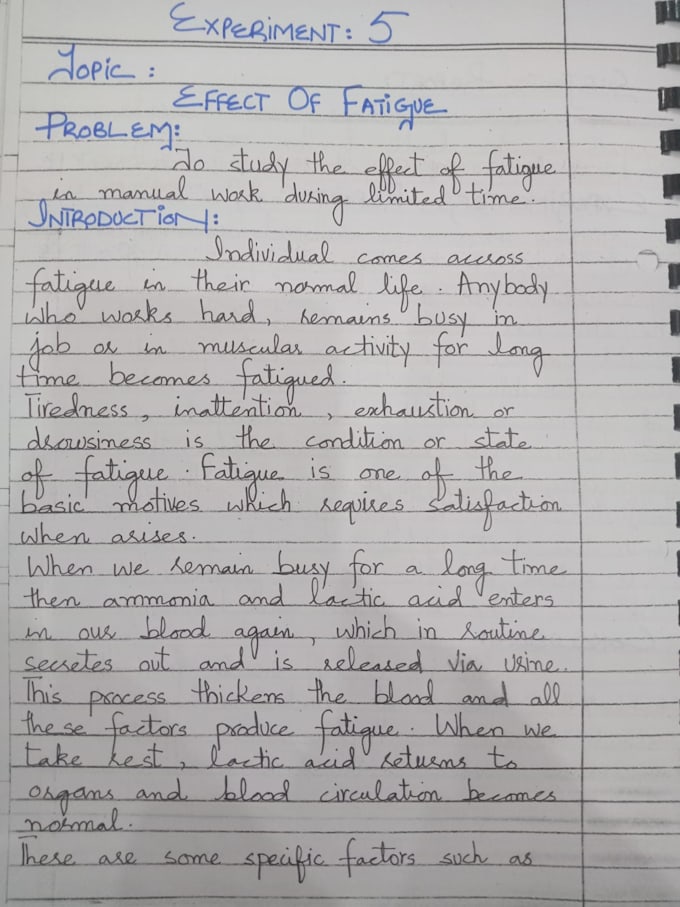 EXPERIMENT: 5
Topic :
EFFECT OF FATIGUE
PROBLEM:
To study the effect of fatigue
in manual work during limited time.
INTRODUCTION:
Individual comes accross
fatigue in their normal life. Anybody
who works hard, remains busy in
job or in muscular activity for long
time becomes fatigued.
Tiredness, inattention, exhaustion or
drowsiness is the condition or state
of fatigue. Fatigue is one of the
basic motives which requires satisfaction
when arises.
When we remain busy for a long time
then ammonia and lactic acid enters
in our blood again, which in routine
secretes out and is released via urine.
This process thickens the blood and all
these factors produce fatigue. When we
take rest, lactic acid returns to
organs and blood circulation becomes
normal.
There are some specific factors such as